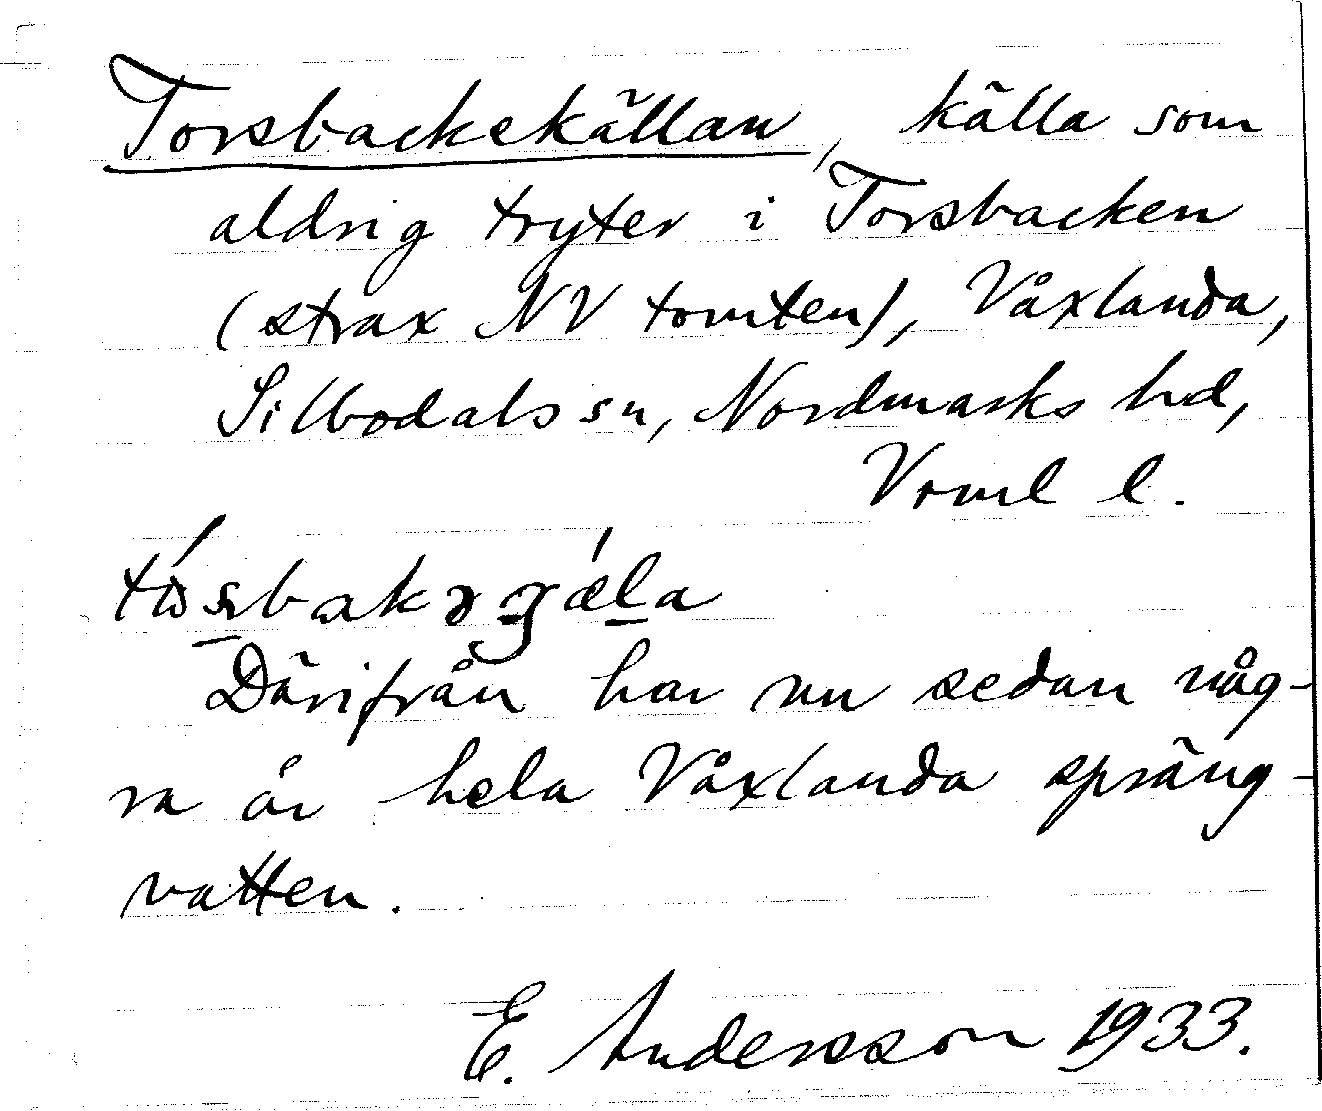 Torsbackekällan, källa som
aldrig tryter i Torsbacken
(strax NV tomten), Våxlanda,
Silbodals sn, Nordmarks hd,
Vrml l.
Därifrån har nu sedan någ-
ra år hela Våxlanda spräng-
vatten.
E. Andersson 1933.